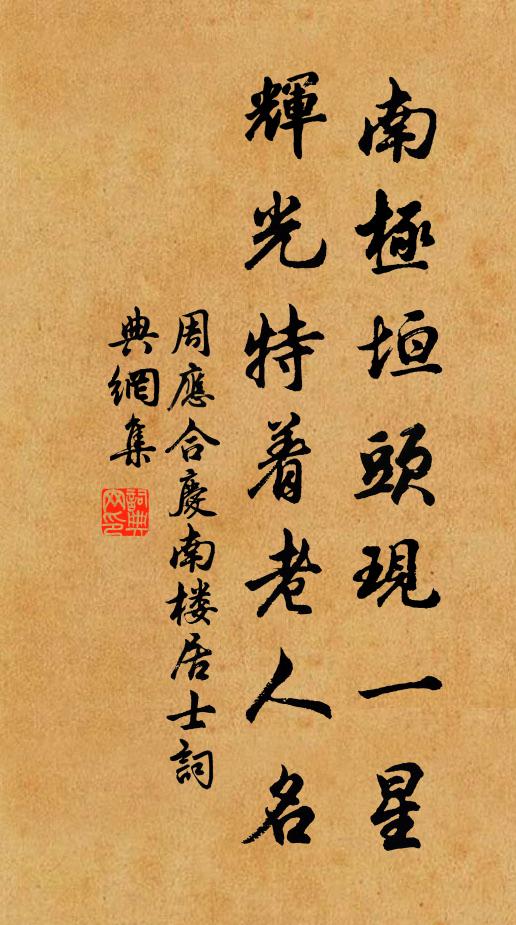 南極垣頭現一星
輝光特着老人名
周應合慶南楼居士詞
典網集
詞典网印